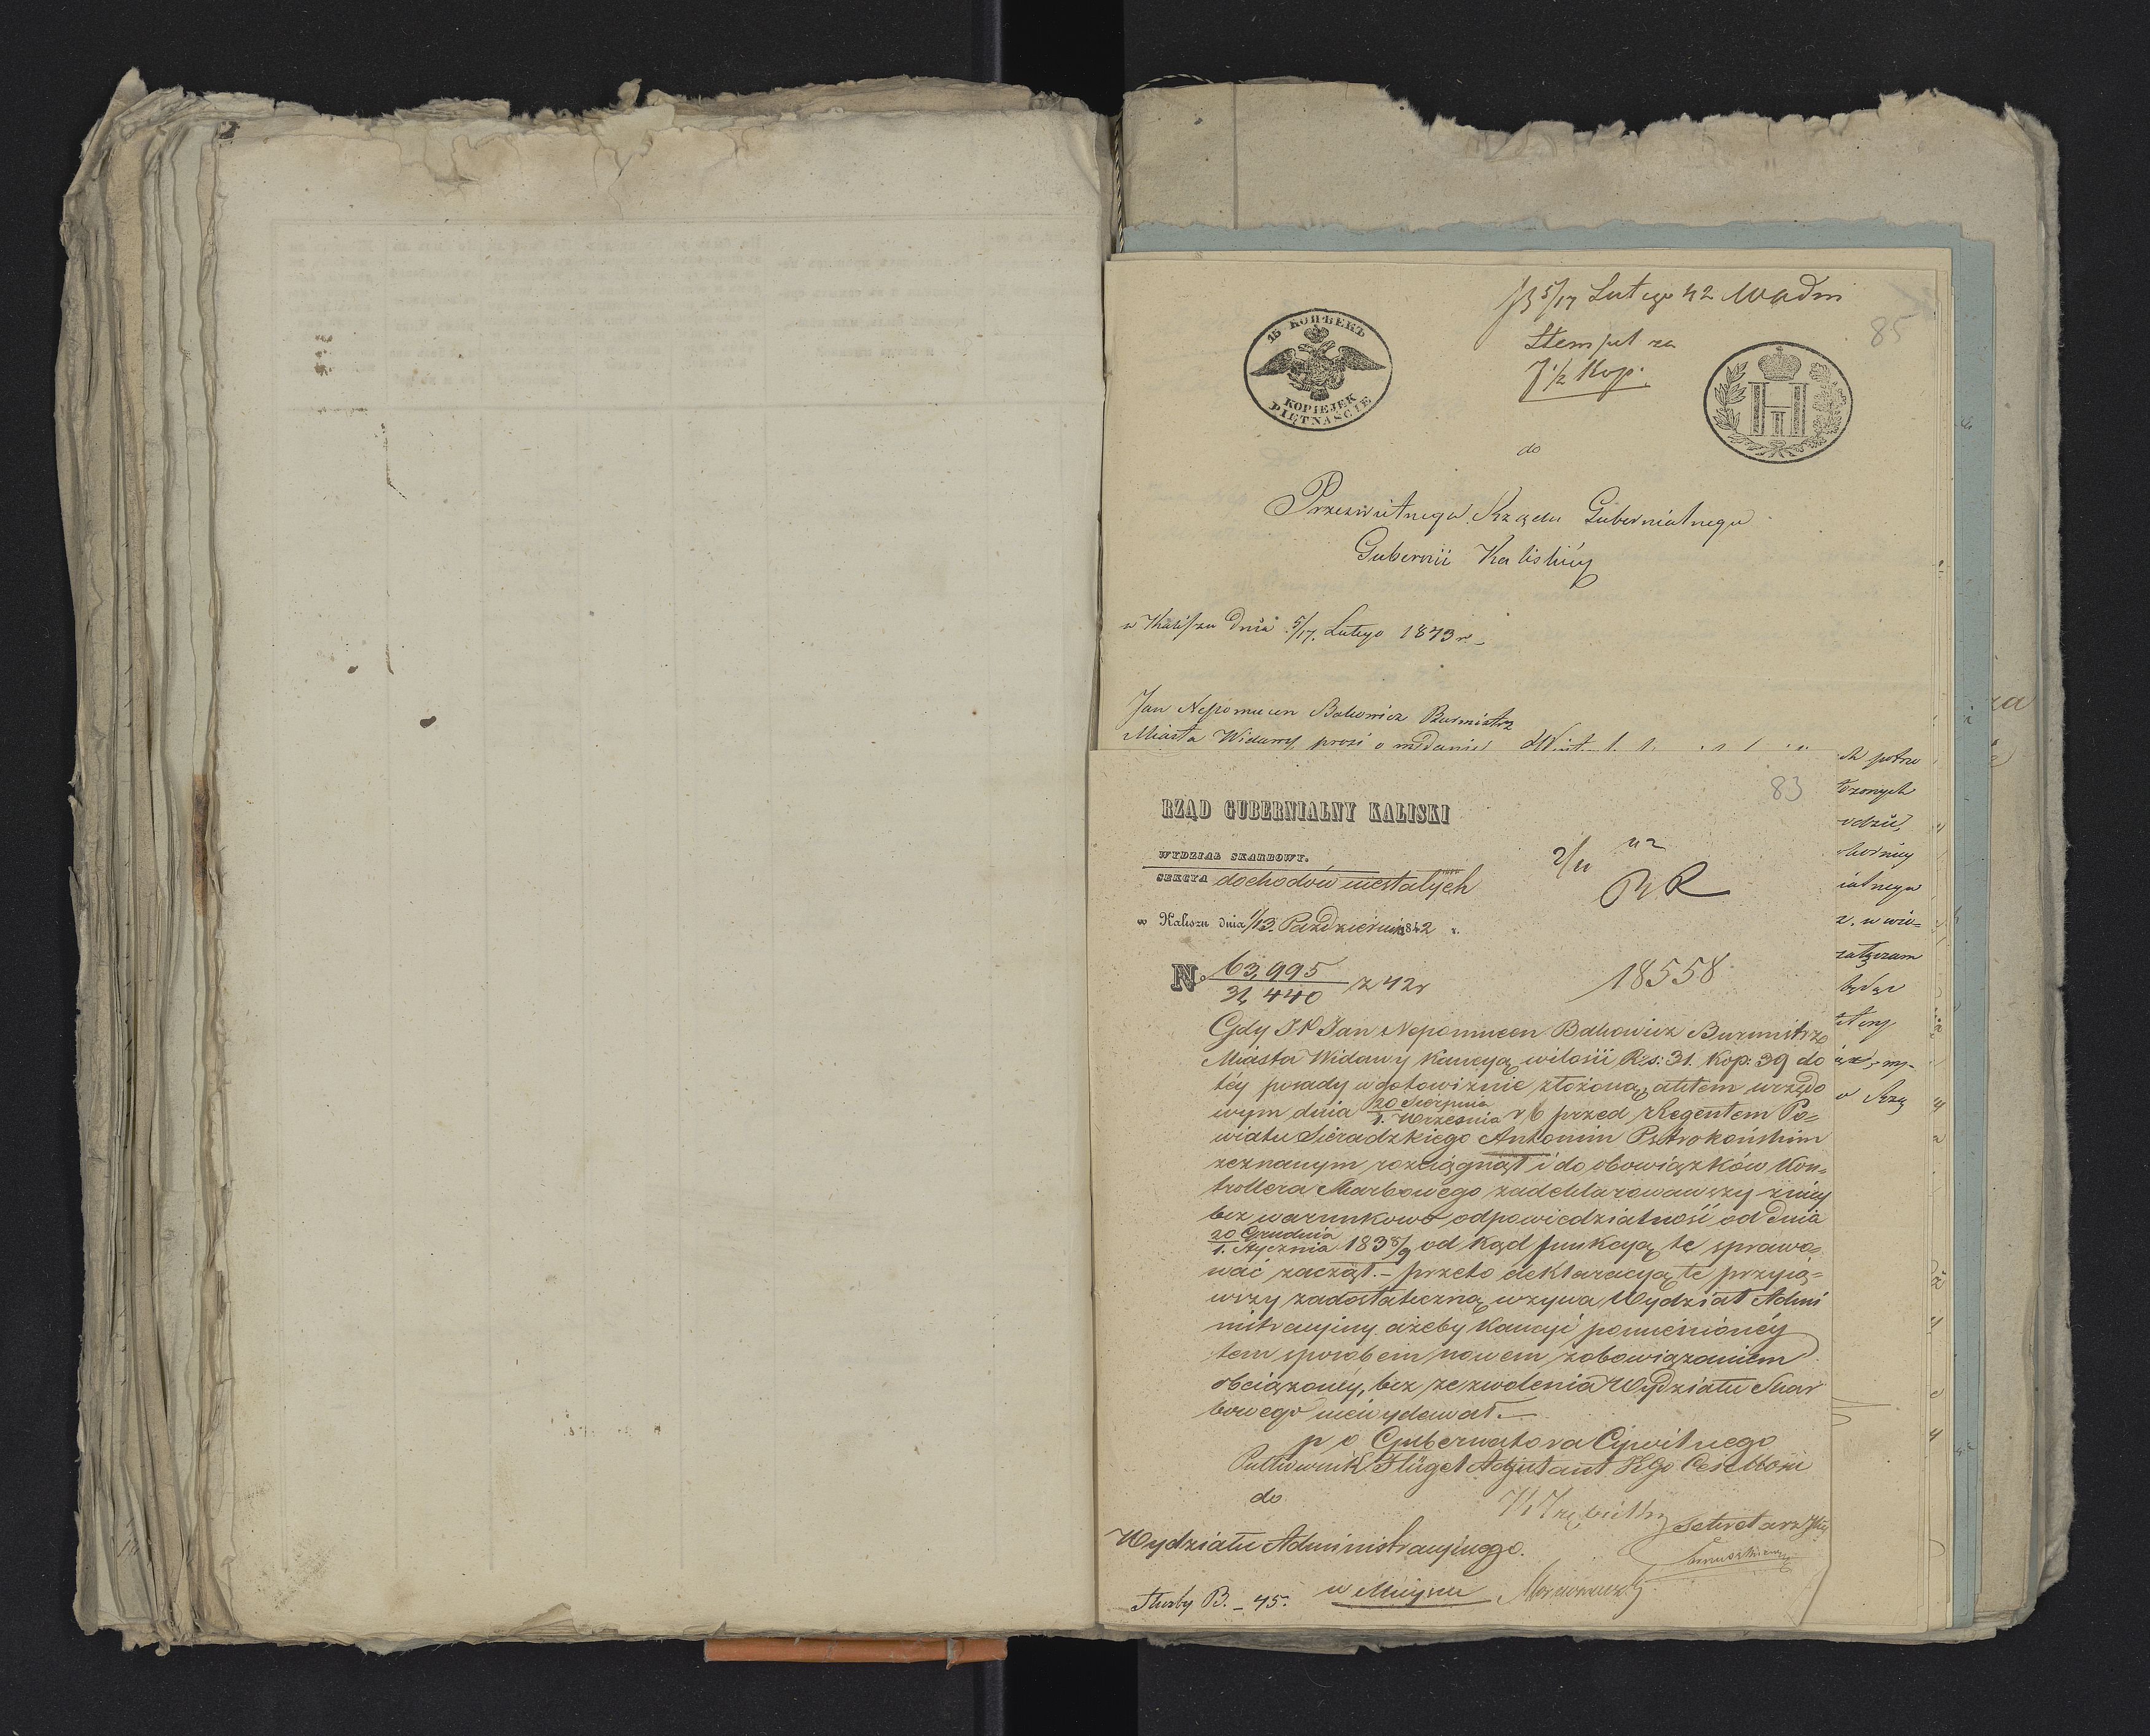 5/17 Lutego 42
85
Stempel za
7 1/2 Kop.
15 КОПѢЕКЪ
KOPIEJEK
PIĘTNAŚCIE
do
Prześwietnego Rządu Gubernialnego
Gubernii Kaliskiéy
w Kaliszu dnia 5/17. Lutego 1843 r.
Jan Nepomucen Bakowicz Burmistrz
Miasta Widawy prosi o wydanie
83
RZĄD GUBERNIALNY KALISKI
WYDZIAŁ SKARBOWY.
SEKCYA dochodów niestałych
w Kaliszu dnia 1/13. Październik 1842 r.
N. 63,995
31,440 z 42r
18558
Gdy JP Jan Nepomucen Bakowicz Burmistrz
Miasta Widawy kaucyą wilości Rs: 31. Kop: 39 do
téy posady w gotowiznie złożoną, aktem urzędo
wym dnia 20 Sierpnia
1. Września r b przed Rejentem Po=
wiatu Sieradzkiego Antonim Pstrokońskim
zeznanym rozciągnął i do obowiązków Kon=
trollera Skarbowego zadeklarowawszy z niéy
bez warunkowo odpowiedzialność od dnia
20 Grudnia
1. Stycznia 1838/9 od kąd funkcyą tę sprawo=
wać zaczął. – przeto deklaracyą tę przyią=
wszy zadostateczną, wzywa Wydział Admi
nistracyiny ażeby kaucyi pomienionéy
tem sposobem nowem zobowiązaniem
obciążonéy, bez zezwolenia Wydziału Skar
bowego niewydawał. –
p o Gubernatora Cywilnego
Pułkownik Flügel Adjutant
do
Sekretarz
Wydziału Administracyinego.
Służby B. – 45. w Mieyscu